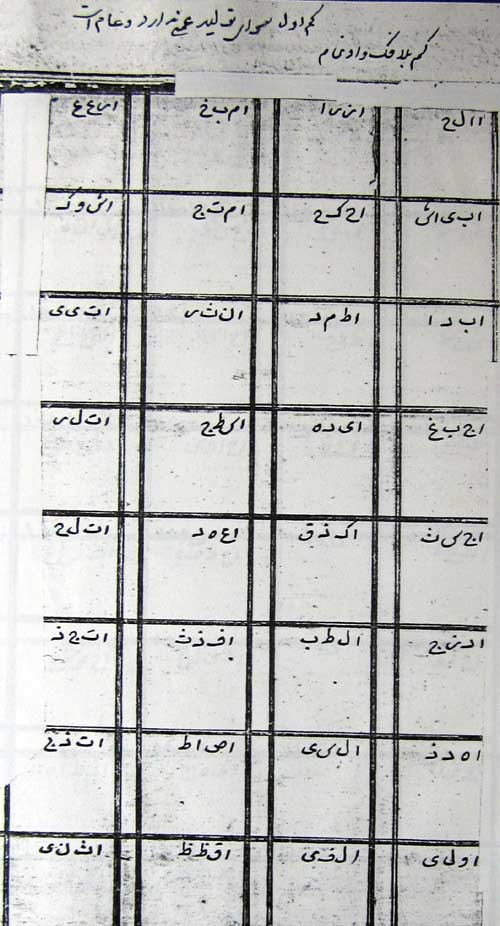 کم اول سوای تولید عین ندارد و عام است
کم بلا فک و ادغام
ا ا ل ج    ا م ب خ
ا ب ی ا ش    ا ح ک ج    ا م ت ج    ا ش و ک
ا ب د ا    ا ط م د    ا ن ث س    ا ت ی ی
ا ج ب غ    ا ی د ه    ا ی ط ج    ا ت ل س
ا ج س ث    ا ک ذ ق    ا ع ه د    ا ت ل ج
ا د ن ج    ا ل ط ب    ا ف ذ ث    ا ت ج ذ
ا ه د ذ    ا ل س ی    ا ص ا ط    ا ت ذ ج
ا و ل ی    ا ل ف ی    ا ق ظ ظ    ا ث ن ی